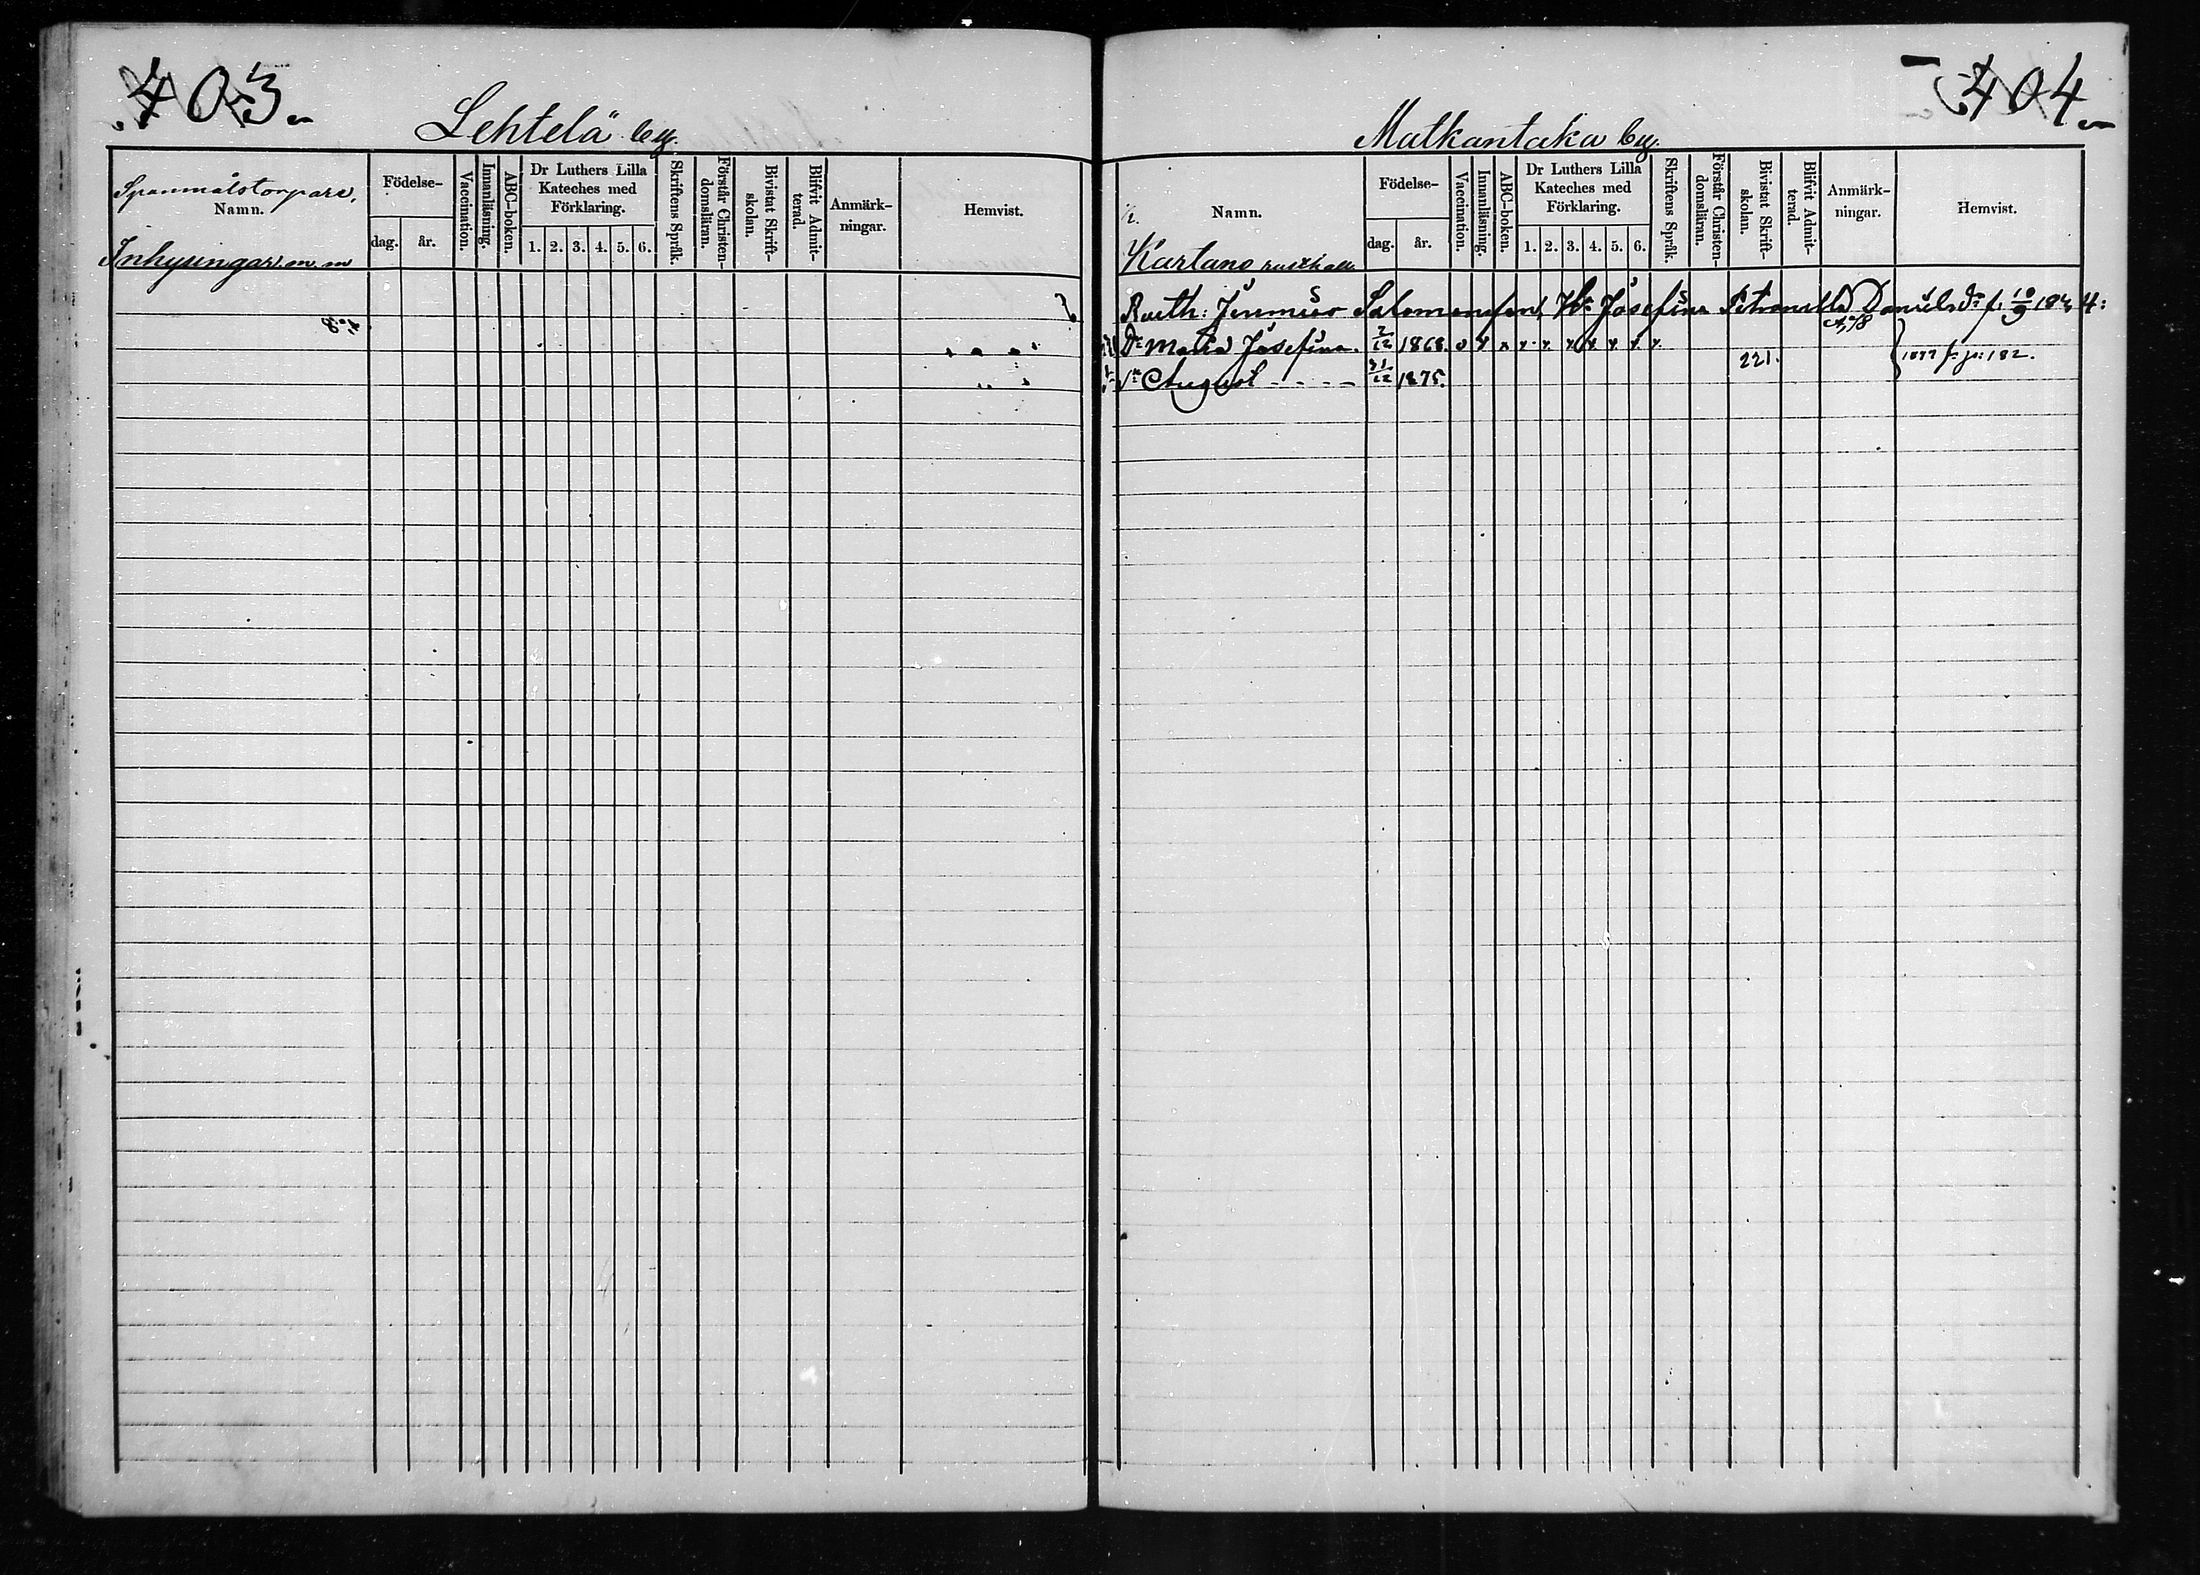 403.
Lehtelä by.
Spanmålstorpare,
Namn.
Inhysingar m. m
Födelse-
dag. år.
Vaccination.
Innanläsning.
ABC-boken.
Dr Luthers Lilla
Kateches med
Förklaring.
1. 2. 3. 4. 5. 6.
Skriftens Språk.
Förstår Christen-
domsläran.
Bivistat Skrift-
skolan.
Blifvit Admit-
terad.
Anmärk-
ningar.
Hemvist.
404.
Matkantaka by.
Namn.
Kartano rusthåll.
Födelse-
dag. år.
Vaccination.
Innanläsning.
ABC-boken.
Dr Luthers Lilla
Kateches med
Förklaring.
1. 2. 3. 4. 5. 6.
Skriftens Språk.
Förstår Christen-
domsläran.
Bivistat Skrift-
skolan.
Blifvit Admit-
terad.
Anmärk-
ningar.
Hemvist.
Rusth: Jeremias Salomonsson, Ha Josefina Petronella Danielsdr f. 10/9 1844:
Dr Maria Josefina. 2/12 1868.
221. 1877 p. 182.
Sn August - - - - 31/12 1875.